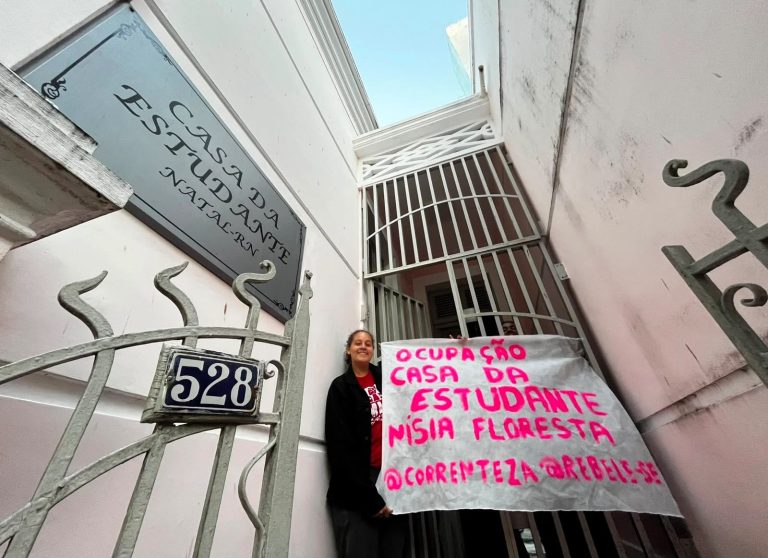 CASA DA
ESTUDANTE
NATAL-RN
528
OCUPAÇÃO
CASA DA
ESTUDANTE
NÍSIA FLORESTA
@CORRENTEZA @REBELE-SE